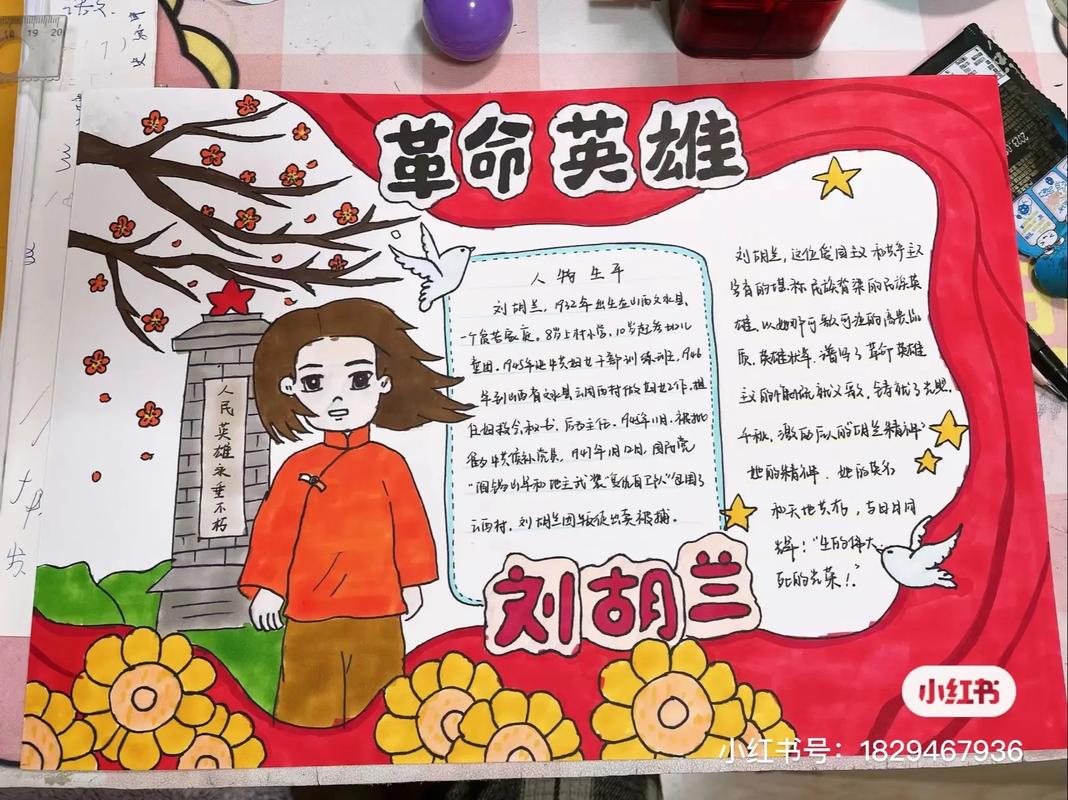 革命英雄
人民英雄永垂不朽
人物生平
刘胡兰，1932年出生在山西文水县，
一个贫苦家庭。8岁上村小学，10岁起参加儿
童团。1945年进共妇女干部训练班，1946
年到山西省文水县云周西村做妇女工作，担
任妇救会秘书、后为主任。1946年11月，被批
中共候补党员，1947年1月12日，国民党
"阎锡山军和地主武装"复仇自卫队"包围了
云西村，刘胡兰因叛徒出卖被捕。
刘胡兰，这位爱国主义和共产主义
的堪称民族脊梁的民族英
雄，以她那可歌可泣的高贵品
质、英雄壮举，谱写了革命英雄
主义的
千秋，激励后人的"胡兰精神"
她的精神、她的英名
和天地共存，与日月同
辉！"生的伟大，
死的光荣！"
刘胡兰
小红书
小红书号：1829467936
18 19 20